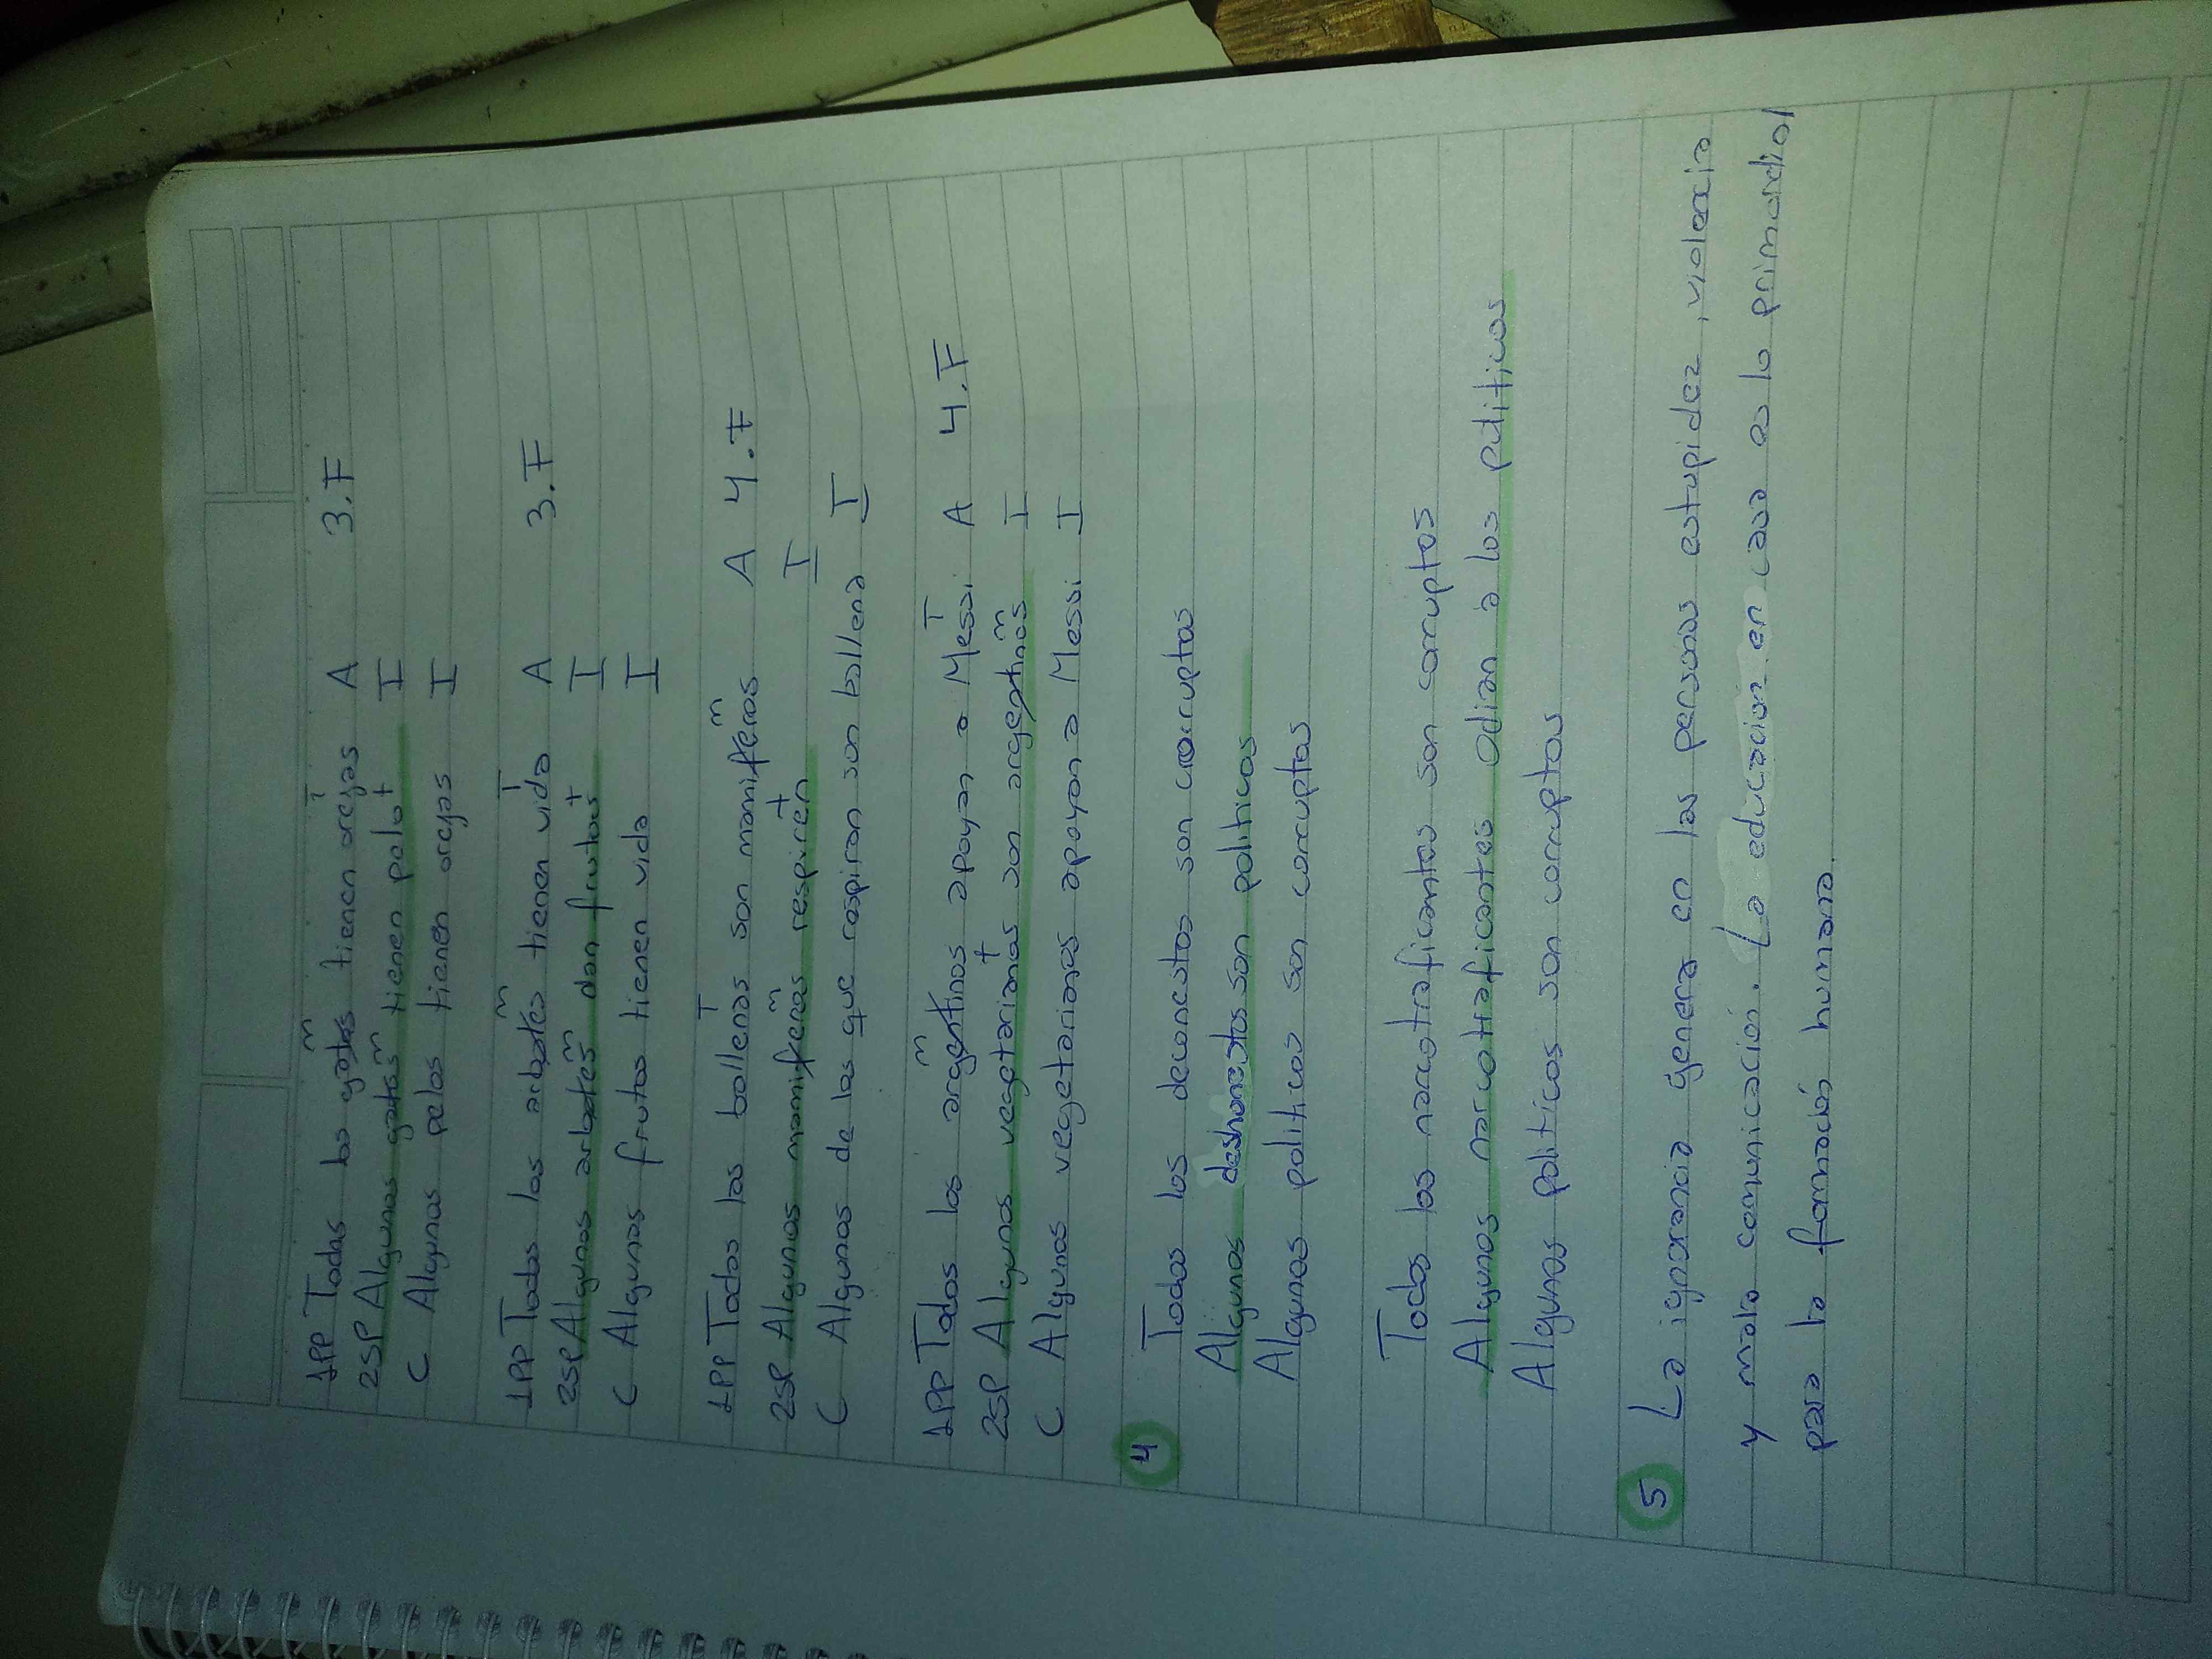 1PP Todos los gatos tienen orejas A 3.F
2SP Algunos gatos tienen pelo I
C Algunos pelos tienen orejas I
1PP Todos los arboles tienen vida A 3.F
2SP Algunos arboles dan frutos I
C Algunos frutos tienen vida I
1PP Todos las ballenas son mamiferos A 4.F
2SP Algunos mamiferos respiren I
C Algunos de los que respiran son ballena I
1PP Todos los argentinos apoyan a Messi A 4.F
2SP Algunos vegetarianos son argentinos I
C Algunos vegetarianos apoyan a Messi I
4 Todos los deconestos son corruptos
Algunos deshonestos son politicos
Algunos politicos son corruptos
Todos los narcotraficantes son corruptos
Algunos narcotraficantes odian a los politicos
Algunos politicos son corruptos
5 La ignorancia genera en las personas estupidez, violencia
y mala comunicación. La educacion en casa es lo primordial
para la formación humana.